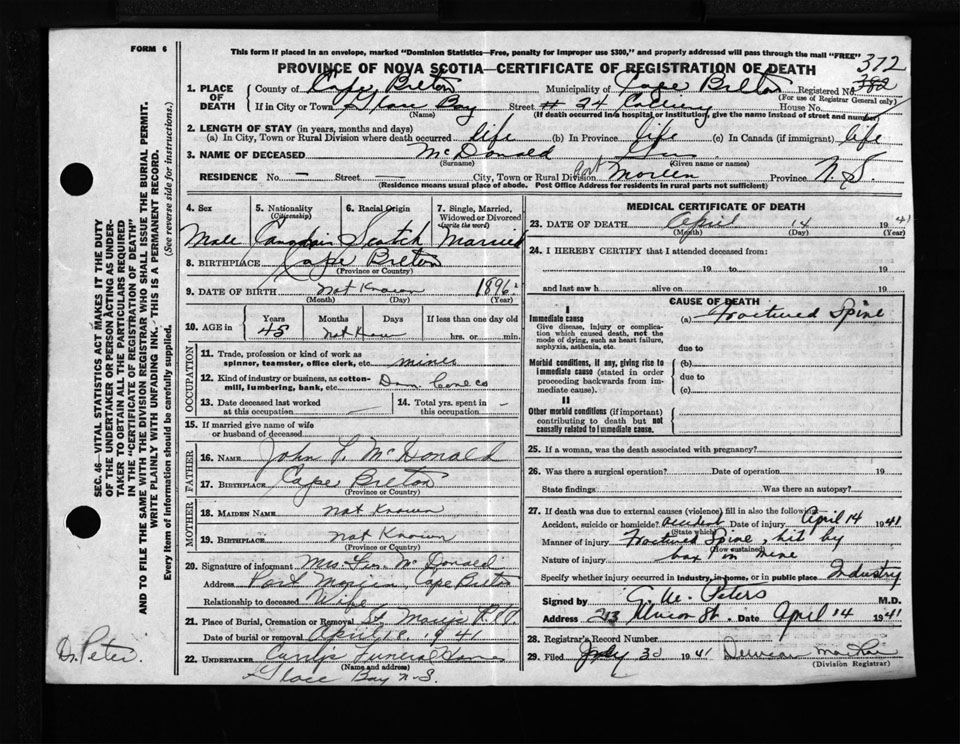 FORM 6
This form if placed in an envelope, marked "Dominion Statistics—Free, penalty for improper use $300," and properly addressed will pass through the mail "FREE"
PROVINCE OF NOVA SCOTIA—CERTIFICATE OF REGISTRATION OF DEATH
372
1. PLACE OF DEATH
County of Cape Breton Municipality of Cape Breton Registered No. 382
(For use of Registrar General only)
If in City or Town Glace Bay Street # 24 Colliery House No.
(Name) (If death occurred in a hospital or institution, give the name instead of street and number)
2. LENGTH OF STAY (in years, months and days)
(a) In City, Town or Rural Division where death occurred life (b) In Province life (c) In Canada (if immigrant) life
3. NAME OF DECEASED McDonald
(Surname) (Given name or names)
RESIDENCE No. — Street — City, Town or Rural Division Port Morien Province N.S.
(Residence means usual place of abode. Post Office Address for residents in rural parts not sufficient)
4. Sex Male
5. Nationality (Citizenship) Canadian
6. Racial Origin Scotch
7. Single, Married, Widowed or Divorced (write the word) Married
8. BIRTHPLACE Cape Breton
(Province or Country)
9. DATE OF BIRTH Not Known 1896
(Month) (Day) (Year)
10. AGE in Years 45 Months Not Know Days If less than one day old hrs. or min.
OCCUPATION
11. Trade, profession or kind of work as spinner, teamster, office clerk, etc. miner
12. Kind of industry or business, as cotton-mill, lumbering, bank, etc. Dom. Coal Co
13. Date deceased last worked at this occupation —
14. Total yrs. spent in this occupation —
15. If married give name of wife or husband of deceased
FATHER
16. NAME John F. McDonald
17. BIRTHPLACE Cape Breton
(Province or Country)
MOTHER
18. MAIDEN NAME Not Known
19. BIRTHPLACE not Known
(Province or Country)
20. Signature of informant Mrs. McDonald
Address Port Morien, Cape Breton
Relationship to deceased Wife
21. Place of Burial, Cremation or Removal St. Marys
Date of burial or removal April 18, 1941
22. UNDERTAKER Curry's Funeral Home
(Name and address)
Glace Bay N.S.
MEDICAL CERTIFICATE OF DEATH
23. DATE OF DEATH April 14 1941
(Month) (Day) (Year)
24. I HEREBY CERTIFY that I attended deceased from:
19 to 19
and last saw h alive on 19
CAUSE OF DEATH
I
Immediate cause (a) Fractured Spine
Give disease, injury or complication which caused death, not the mode of dying, such as heart failure, asphyxia, asthenia, etc.
due to
Morbid conditions, if any, giving rise to immediate cause (stated in order proceeding backwards from immediate cause).
(b)
due to
(c)
II
Other morbid conditions (if important) contributing to death but not causally related to immediate cause.
25. If a woman, was the death associated with pregnancy?
26. Was there a surgical operation? Date of operation 19
State findings Was there an autopsy?
27. If death was due to external causes (violence) fill in also the following:
Accident, suicide or homicide? accident Date of injury April 14 1941
(State which)
Manner of injury Fractured Spine, hit by
(How sustained)
Nature of injury box in mine
Specify whether injury occurred in industry, in home, or in public place Industry
Signed by Peters M.D.
Address 213 Union St. Date April 14 1941
28. Registrar's Record Number
29. Filed July 30 1941 Duncan
(Division Registrar)
SEC. 46—VITAL STATISTICS ACT "MAKES IT THE DUTY OF THE UNDERTAKER OR PERSON ACTING AS UNDERTAKER TO OBTAIN ALL THE PARTICULARS REQUIRED IN THE "CERTIFICATE OF REGISTRATION OF DEATH" AND TO FILE THE SAME WITH THE DIVISION REGISTRAR WHO SHALL ISSUE THE BURIAL PERMIT.
WRITE PLAINLY WITH UNFADING INK. THIS IS A PERMANENT RECORD.
Every item of information should be carefully supplied. (See reverse side for instructions.)
Dr. Peter